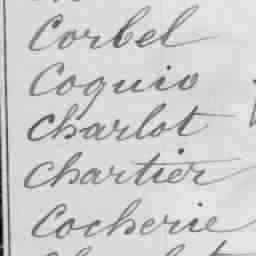 Corbel
Coquio
Charlot
Chartier
Cocherie